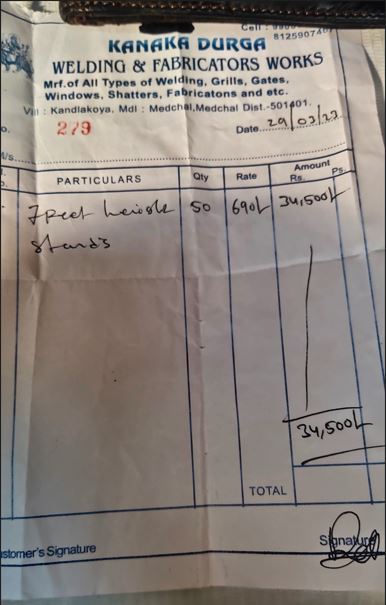 Cell : 9908
8125907
KANAKA DURGA
WELDING & FABRICATORS WORKS
Mrf.of All Types of Welding, Grills, Gates,
Windows, Shatters, Fabricatons and etc.
Vill : Kandlakoya, Mdl : Medchal,Medchal Dist.-501401.
o. 279 Date. 29/03/23
M/s.
PARTICULARS Qty Rate Amount
Rs. Ps.
7 Feet height 50 690/- 34,500/-
Stands
34,500/-
TOTAL
ustomer's Signature Signature